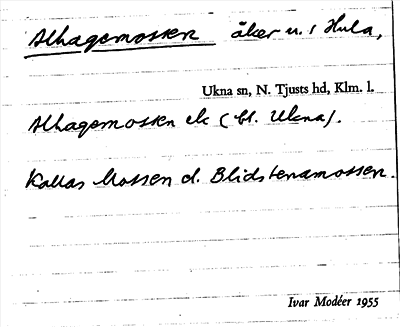 Alhagemossen åker u. / Hula,
Ukna sn, N. Tjusts hd, Klm. l.
Alhagemossen ek (bl. Ukna).
Kallas Mossen d. Blidstenamossen.
Ivar Modéer 1955